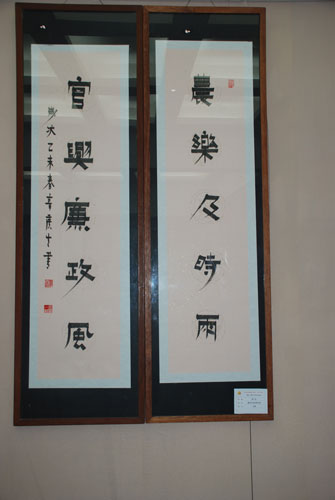 農樂及時雨
官興廉政風
次乙未春 書